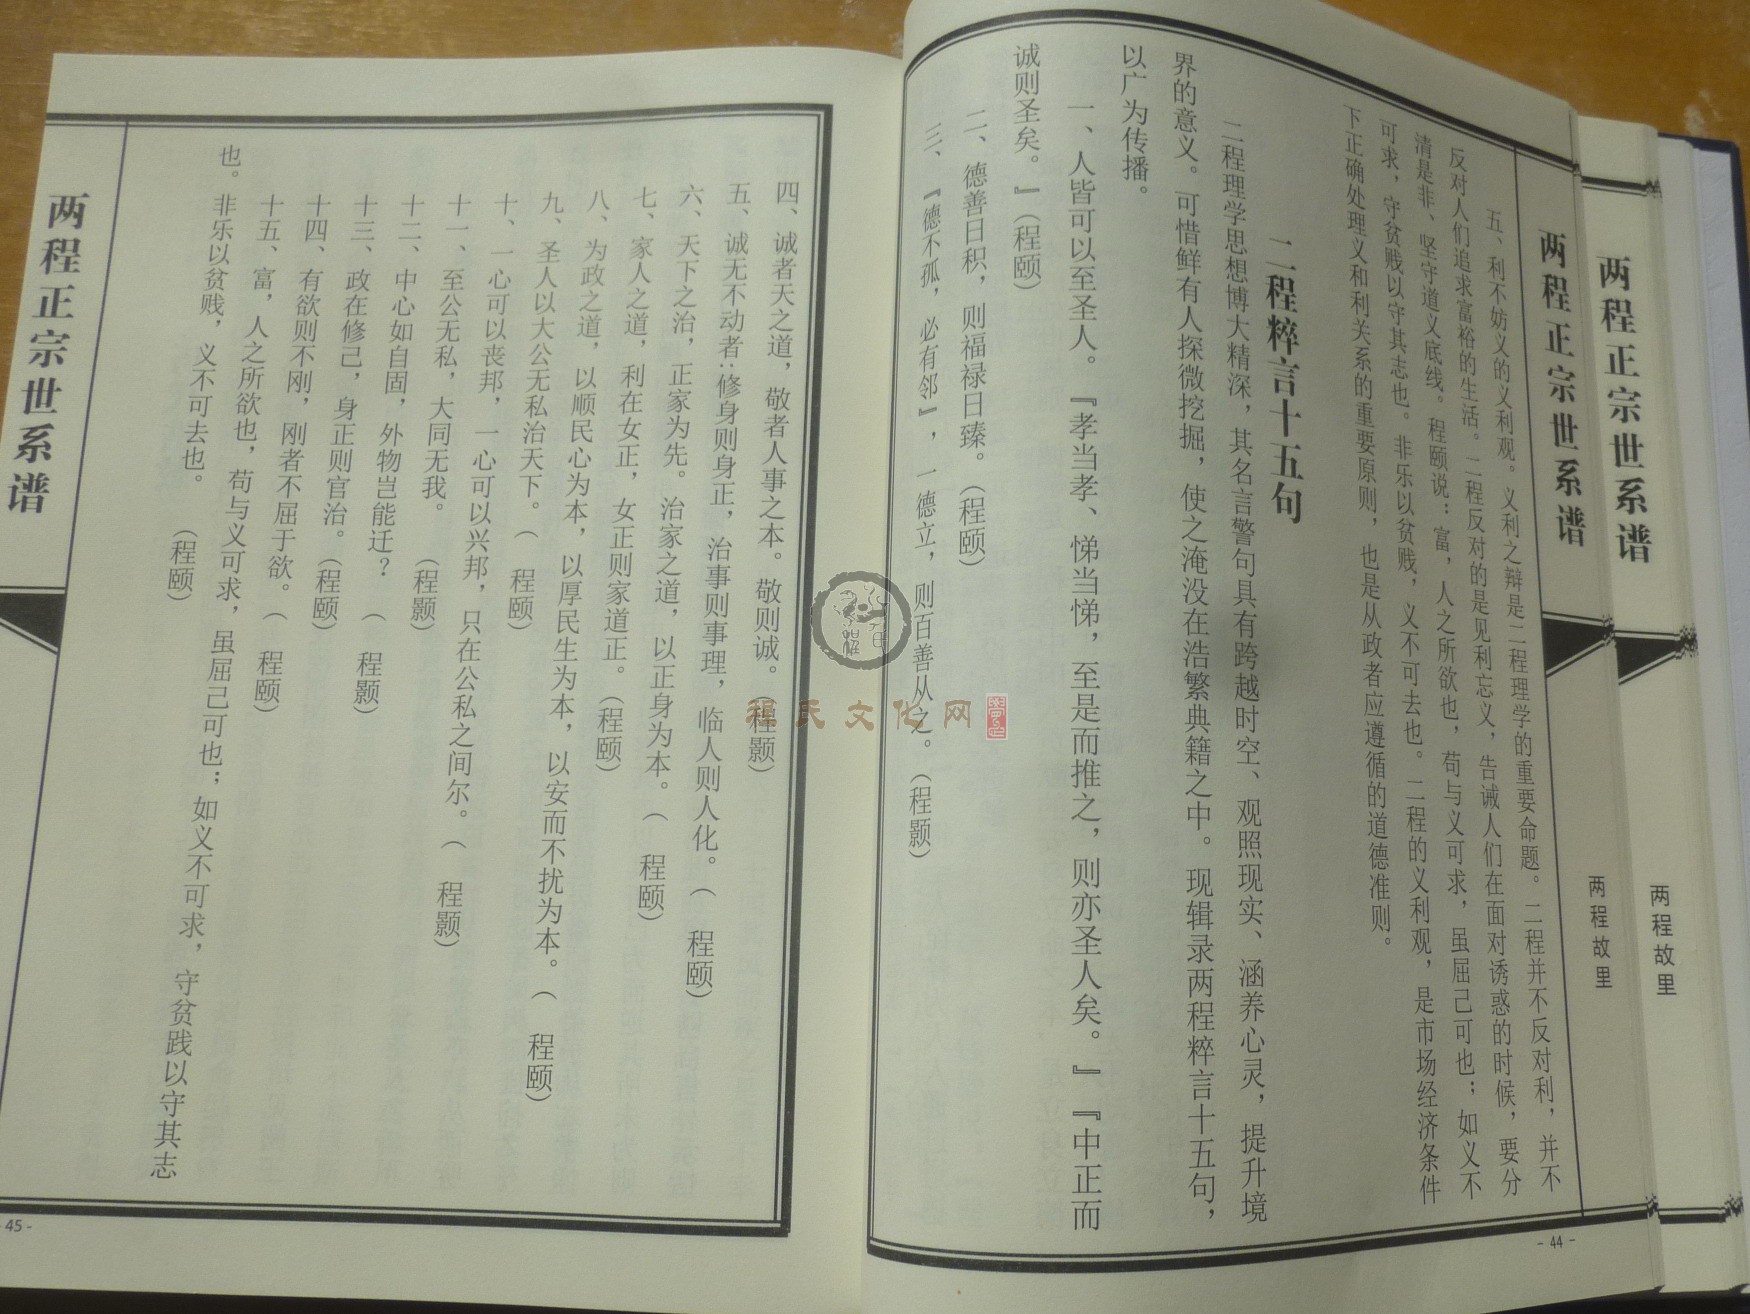 两程正宗世系谱
两程故里
两程正宗世系谱
两程故里
五、利不妨义的义利观。义利之辩是二程理学的重要命题。二程并不反对利，并不
反对人们追求富裕的生活。二程反对的是见利忘义，告诫人们在面对诱惑的时候，要分
清是非、坚守道义底线。程颐说：富，人之所欲也，苟与义可求，虽屈己可也；如义不
可求，守贫贱以守其志也。非乐以贫贱，义不可去也。二程的义利观，是市场经济条件
下正确处理义和利关系的重要原则，也是从政者应遵循的道德准则。
二程粹言十五句
二程理学思想博大精深，其名言警句具有跨越时空、观照现实、涵养心灵，提升境
界的意义。可惜鲜有人探微挖掘，使之淹没在浩繁典籍之中。现辑录两程粹言十五句，
以广为传播。
一、人皆可以至圣人。『孝当孝、悌当悌，至是而推之，则亦圣人矣。』『中正而
诚则圣矣。』（程颐）
二、德善日积，则福禄日臻。（程颐）
三、『德不孤，必有邻』，一德立，则百善从之。（程颢）
- 44 -
四、诚者天之道，敬者人事之本。敬则诚。（程颢）
五、诚无不动者：修身则身正，治事则事理，临人则人化。（程颐）
六、天下之治，正家为先。治家之道，以正身为本。（程颐）
七、家人之道，利在女正，女正则家道正。（程颐）
八、为政之道，以顺民心为本，以厚民生为本，以安而不扰为本。（程颐）
九、圣人以大公无私治天下。（程颐）
十、一心可以丧邦，一心可以兴邦，只在公私之间尔。（程颢）
十一、至公无私，大同无我。（程颢）
十二、中心如自固，外物岂能迁？（程颢）
十三、政在修己，身正则官治。（程颐）
十四、有欲则不刚，刚者不屈于欲。（程颐）
十五、富，人之所欲也，苟与义可求，虽屈己可也；如义不可求，守贫践以守其志
也。非乐以贫贱，义不可去也。（程颐）
两程正宗世系谱
- 45 -
程氏文化网